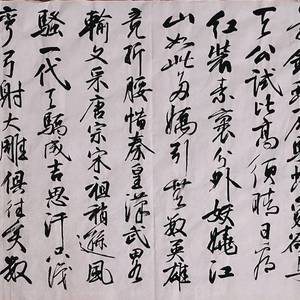 天公試比高須晴日看
紅裝素裹分外妖嬈江
山如此多嬌引無數英雄
竞折腰惜秦皇漢武略
輸文采唐宗宋祖稍遜風
騷一代天驕成吉思汗只識
彎弓射大雕俱往矣數